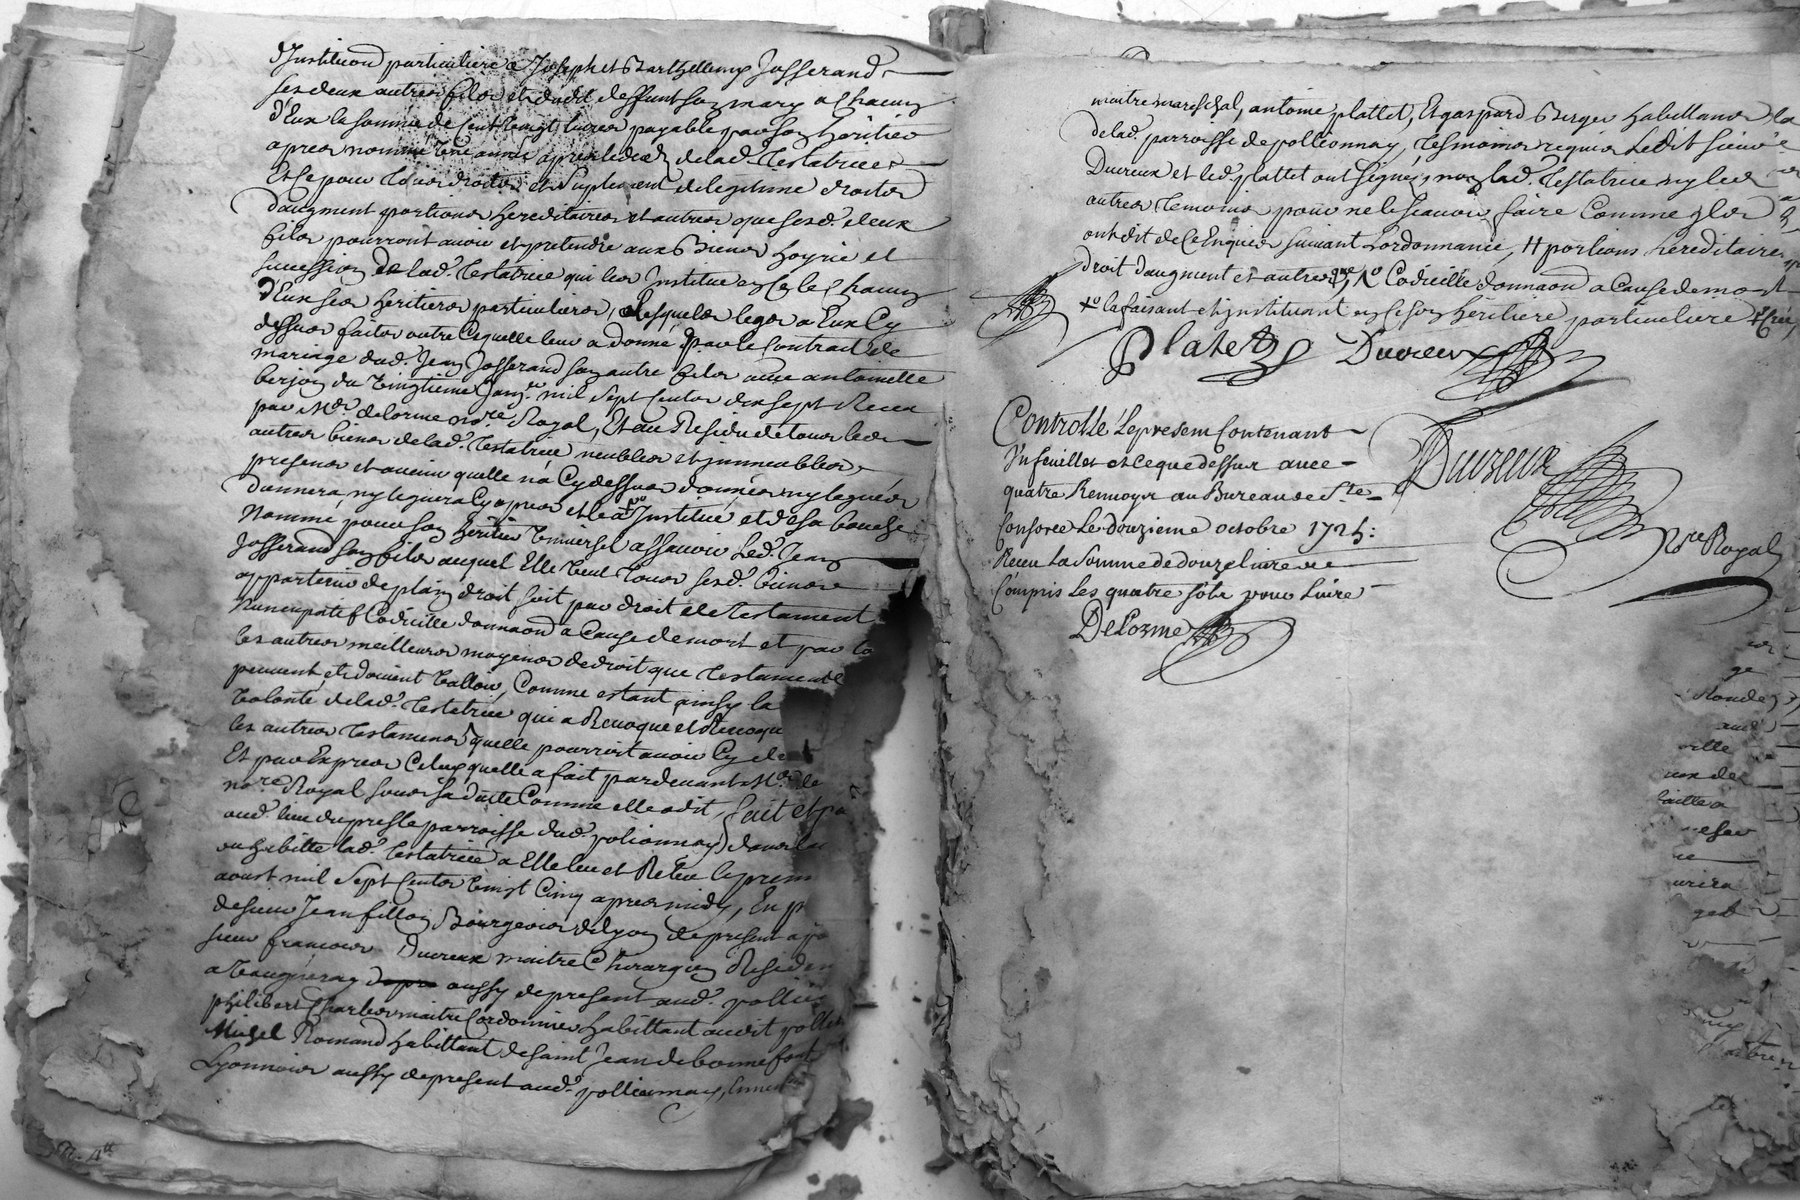 d'Institu͠on particuliere a Joseph et Barthellemy Josserand
ses deux autres fils et dudit deffunt son mary a chacun
d'Eux la somme de Cent vingt livres payable par son heritier
apres nommé une année apres le deced de lad.e Testatrice
Et ce pour tous droits et suplement de legitime droits
daugment portions hereditaires et autres que sesd.s deux
fils pourront avoir et pretendre aux Biens hoyrie et
succession de lad.e Testatrice qui les Institue en ce le chacun
d'Eux ses heritiers particuliers, lesquels legs a Eux Cy
dessus faits outre Cequelle leur a donné par le Contrait de
mariage dud. Jean Josserand son autre fils avec antoinette
berjon du vingtieme Janv.er mil sept Cents dix sept Receu
par M.e delorme no.re Royal, Et au Residu de tous les
autres biens de lad.e Testatrice meubles et immeubles
presens et avenir quelle n'a Cy dessus donnés ny legués
donnera ny leguera Cy apres et le a Institué et de sa bouche
Nommé pour son heritier universel assavoir led. Jean
Josserand son fils auquel Elle veut tous sesd. biens
appartenir de plain droit soit par droit de Testament
Nuncupatif Codicille donna͠on a Cause de mort et par to
les autres meilleurs moyens de droit que Testament
peuvent et doivent valloir, Comme estant ainsy la
volonté de lad.e Testatrice qui a Revoque et Revoqu
les autres Testamens quelle pourroit avoir Cy de
Et par Expres Celuy quelle a fait pardevant M.e de
no.re Royal sous sa datte Comme elle a dit, fait et pa
aud. lieu du presle parroisse dud. polionnay dans la
ou habitte lad.e Testatrice a Elle leu et Releu le prem
aoust mil sept Cents vingt Cinq apres midy, En p
de sieur Jean fillon Bourgeois de Lyon de present a po
sieur francois Ducreux maitre Chirurgien Residen
a vaugneray aussy de present aud. pollio
philibert Charles maitre Cordonnier habittant audit pollio
Michel Romand habittant de saint Jean de bonnefont
Lyonnois aussy de present aud. pollionnay,
maitre mareschal, antoine plattet, Et gaspard Berger habittans
de lad. parroisse de pollionnay, Tesmoins requis Ledit sieur
Ducreux et led. plattet ont signé, non lad.e Testatrice ny les
autres temoins pour ne le scavoir faire Comme ils
ont dit de Ce Enquis suivant Lordonnance, # portions hereditaires
droit daugment et autres que, Codicille donna͠on a Cause de mort
la faisant et instituant en ce son heritiere particuliere
Platet Ducreux
Controllé Le present Contenant
feuilles et ce que dessus avec
quatre Renvoys au Bureau de S.te
Consorce Le douzieme octobre 1725:
Receu La Somme de douze livres
Compris Les quatre sols pour Livre
DeLorme
Ducreux
N.re Royal